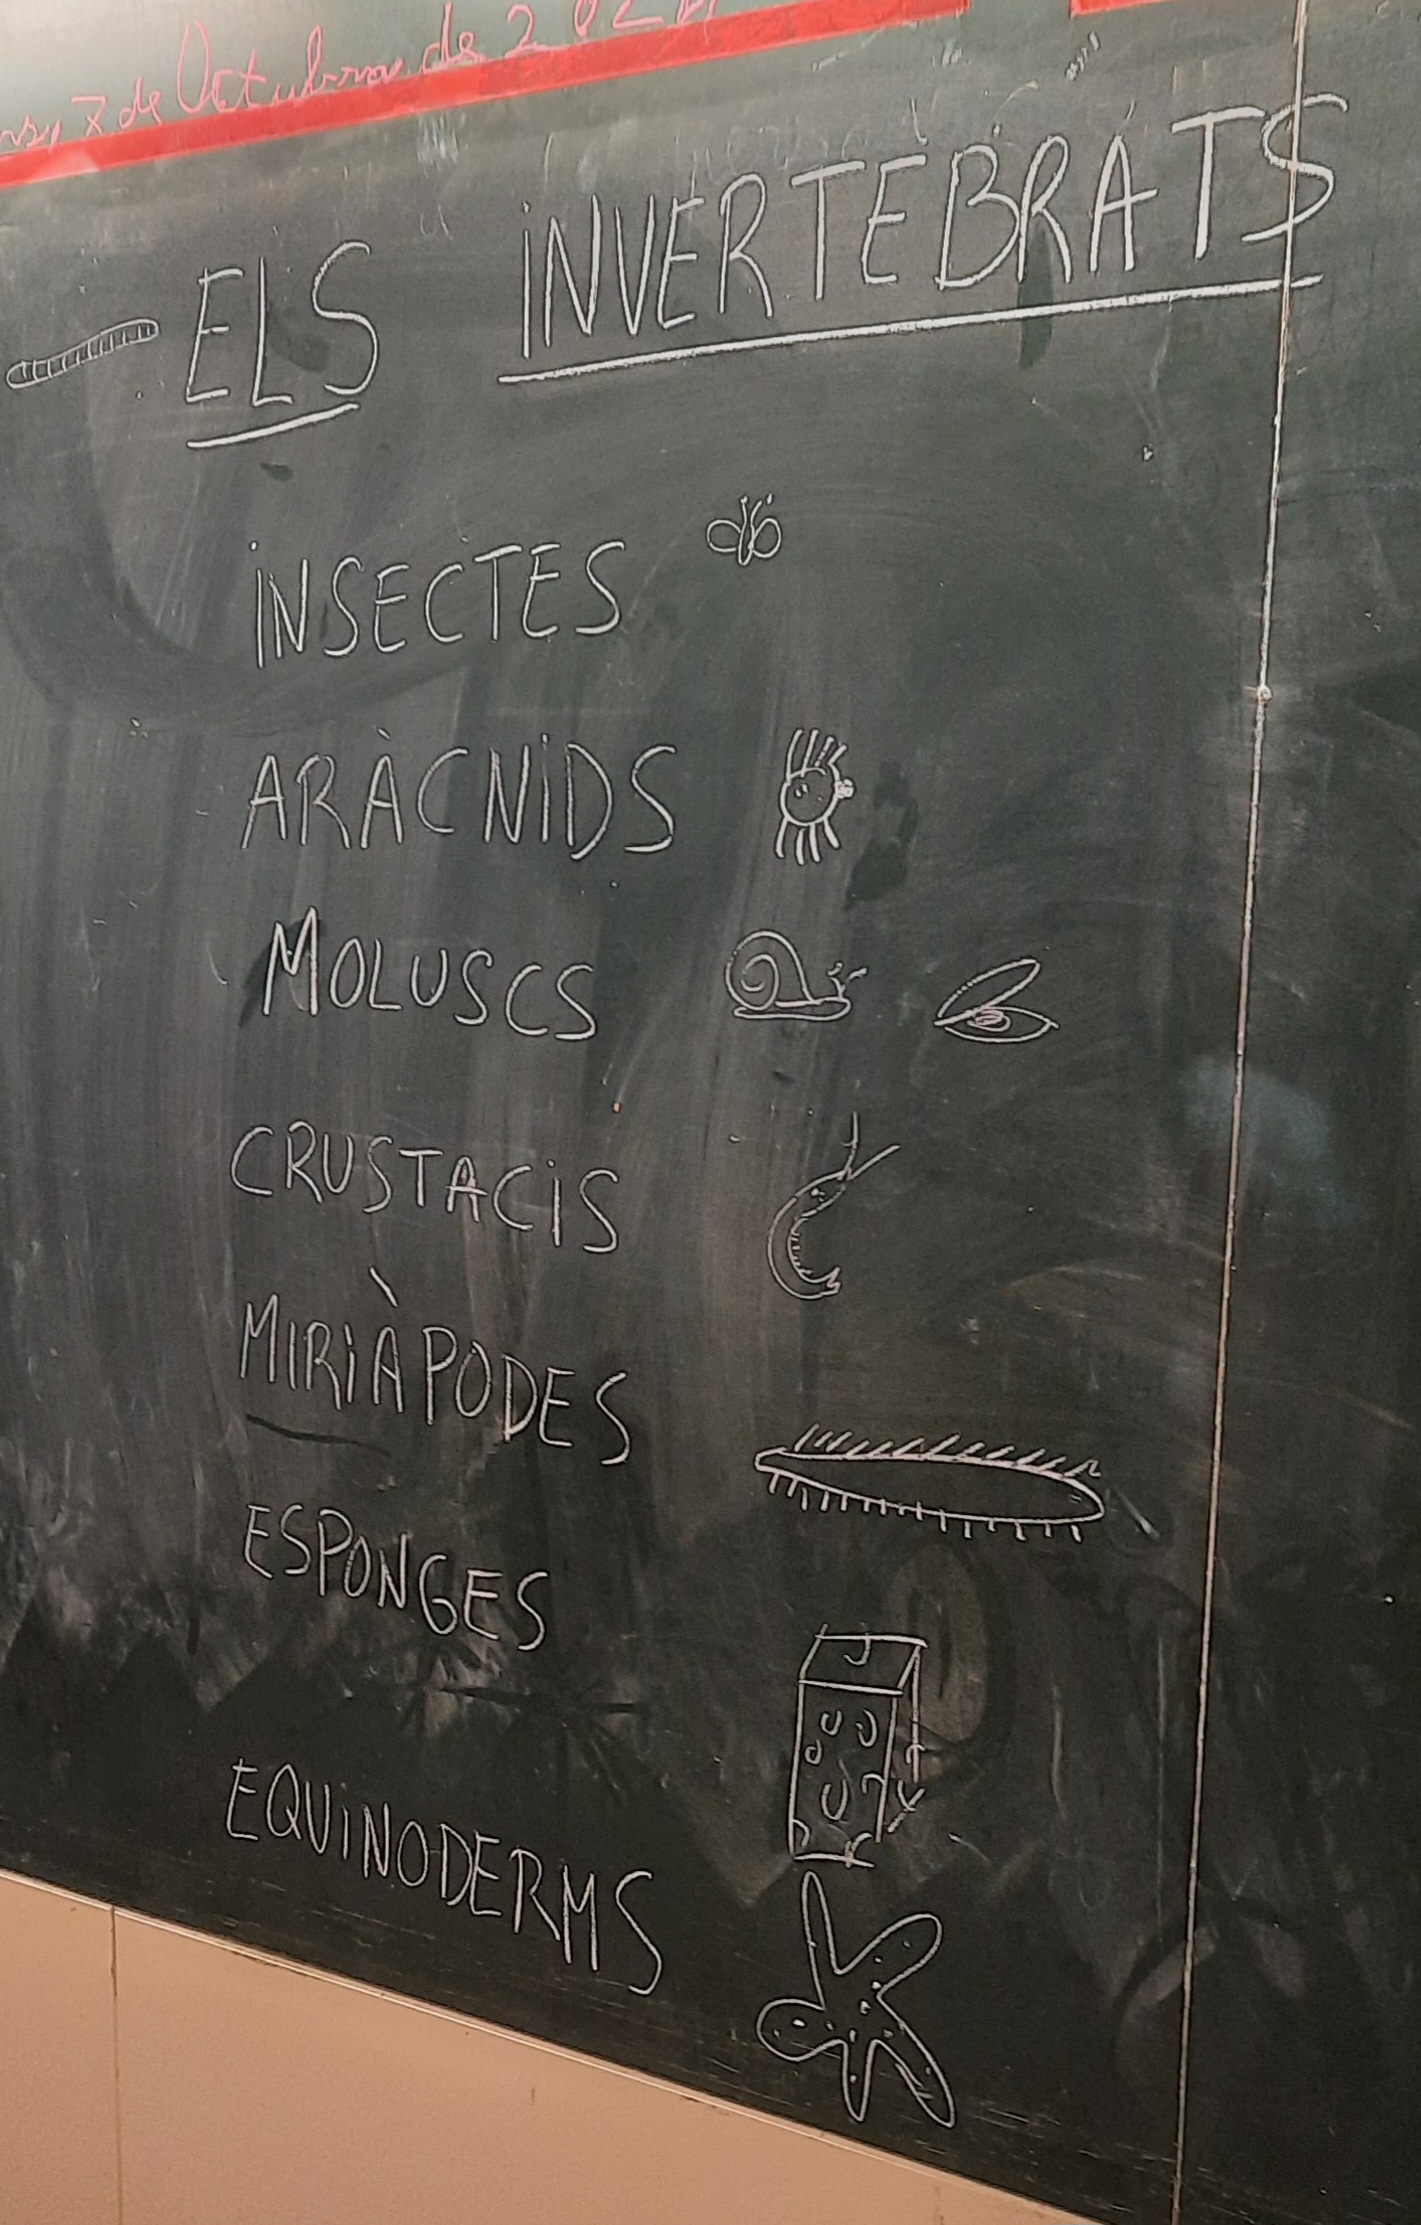 7 de Octubre de 202
ELS INVERTEBRATS
INSECTES
ARÀCNIDS
MOLUSCS
CRUSTACIS
MIRIÀPODES
ESPONGES
EQUINODERMS